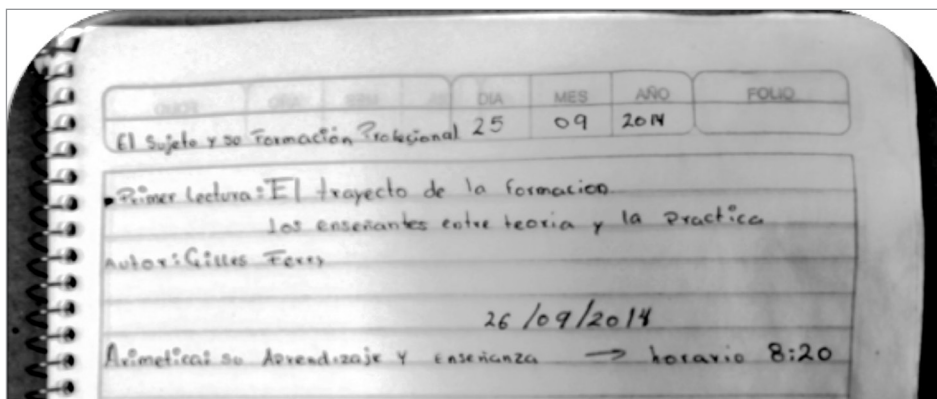 DIA MES AÑO FOLIO
El Sujeto y su Formación Profesional 25 09 2014
Primer lectura: El trayecto de la formacion
los enseñantes entre teoria y la Practica
Autor: Gilles Ferry
26/09/2014
Arimetica: su Aprendizaje y enseñanza → horario 8:20